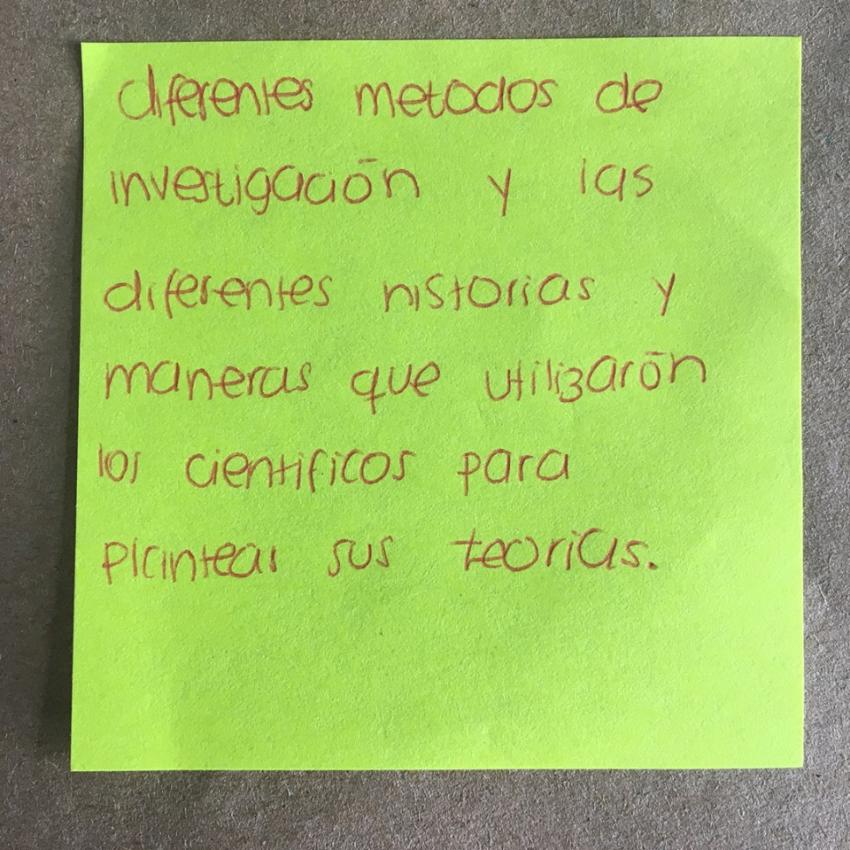 diferentes metodos de
investigación y las
diferentes historias y
maneras que utilizarón
los cientificos para
plantear sus teorias.